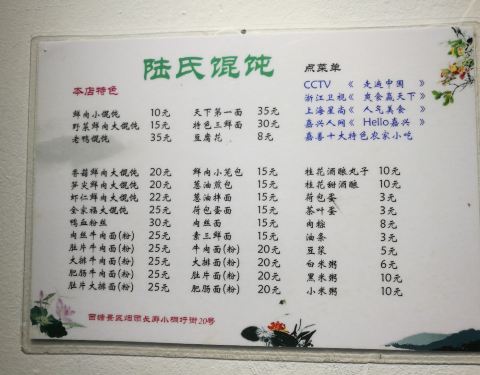 陆氏馄饨
点菜单
本店特色
CCTV 《 走遍中国 》
浙江卫视《 爽食赢天下 》
上海星尚《 人气美食 》
嘉兴人网《 Hello嘉兴 》
嘉善十大特色农家小吃
鲜肉小馄饨 10元
野菜鲜肉大馄饨 15元
老鸭馄饨 35元
天下第一面 35元
特色三鲜面 30元
豆腐花 8元
香菇鲜肉大馄饨 20元
笋灾鲜肉大馄饨 20元
虾仁鲜肉大馄饨 22元
全家福大馄饨 25元
鸭血粉丝 30元
肉丝牛肉面(粉) 25元
肚片牛肉面(粉) 25元
大排牛肉面(粉) 25元
肥肠牛肉面(粉) 25元
肚片大排面(粉) 25元
鲜肉小笼包 15元
葱油煎包 15元
葱油拌面 15元
荷包蛋面 15元
肉丝面 15元
素三鲜面 15元
牛肉面(粉) 20元
大排面(粉) 20元
肥肠面(粉) 20元
肚片面(粉) 20元
桂花酒酿丸子 10元
桂花甜酒酿 10元
荷包蛋 3元
茶叶蛋 3元
肉粽 8元
油条 3元
豆浆 5元
白米粥 6元
黑米粥 10元
小米粥 10元
西塘景区烟雨长廊小桐圩街20号